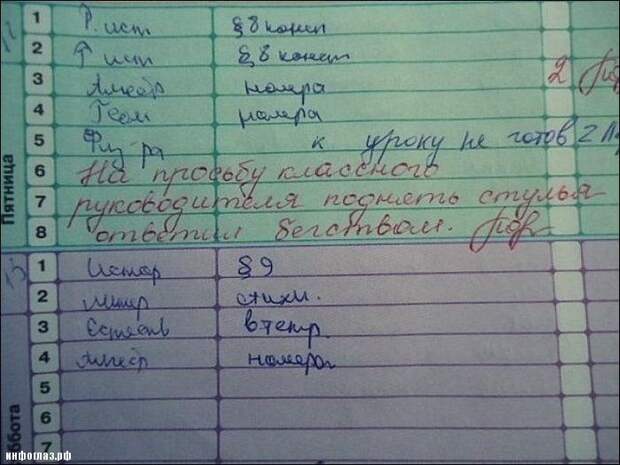 1 Р. ист § 8 консп
2 Р ист § 8 конст
3 Алгебр номера 2
4 Геом номера
5 Физ-ра к уроку не готов 2
6 На просьбу классного
7 руководителя поднять стулья
8 ответил бегством.
Пятница
1 Истор § 9
2 Литер стихи.
3 Естеств в тетр
4 Алгебр номера
5
6
7
ббота
инфоглаз.рф